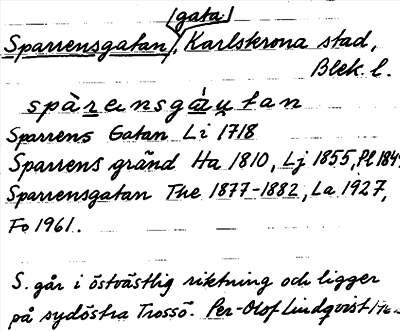 (gata)
Sparrensgatan, Karlskrona stad,
Blek. l.
spàrensgáꭒtan
Sparrens Gatan Li 1718
Sparrens gränd Ha 1810, Lj 1855, Pl 184
Sparrensgatan The 1877-1882, La 1927,
Fo 1961.
S. går i östvästlig riktning och ligger
på sydöstra Trossö. Per-Olof Lindqvist